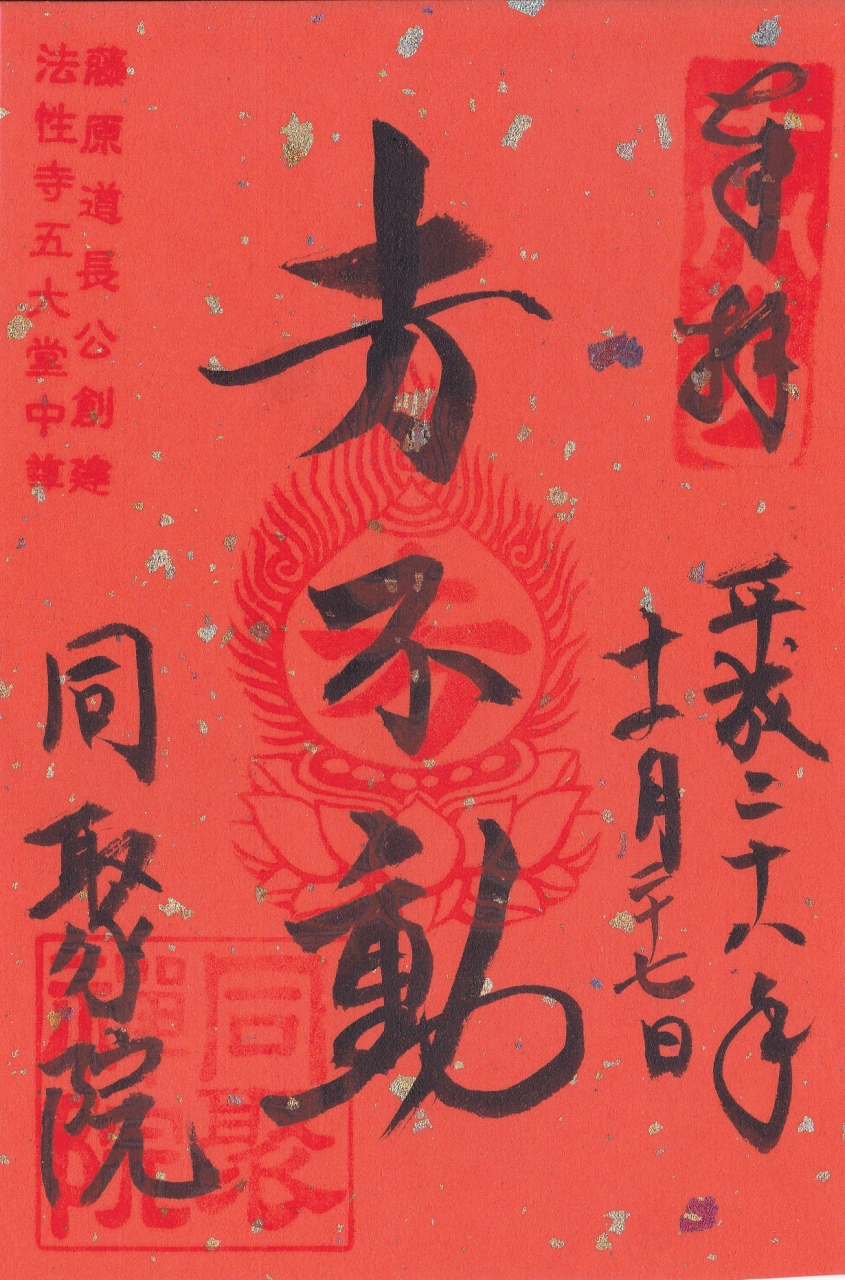 奉拝
平成二十八年
十一月二十七日
不動
藤原道長公創建
法性寺五大堂中尊
同聚院
同聚
禪院